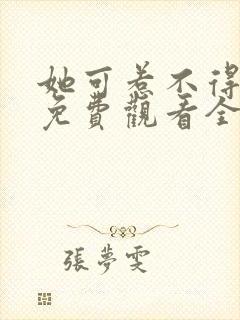 她可惹不得
免費觀看全
張夢雯